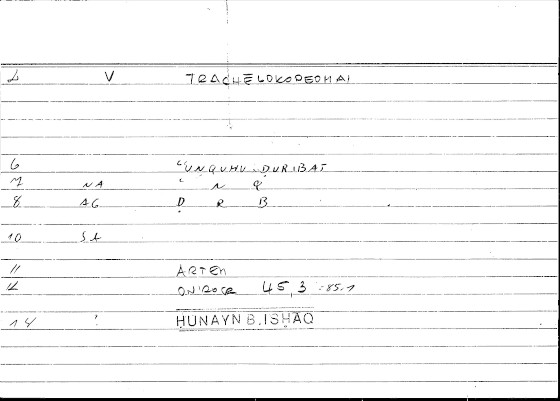 V TRACHELOKOPEOMAI
6 ʿUNQUHU ḌURIBAT
7 NA ʿ N Q
8 AG Ḍ R B
10 SL
11 ARTEM
ONIROCR 45,3 :85.1
14 : HUNAYN B. ISḤĀQ